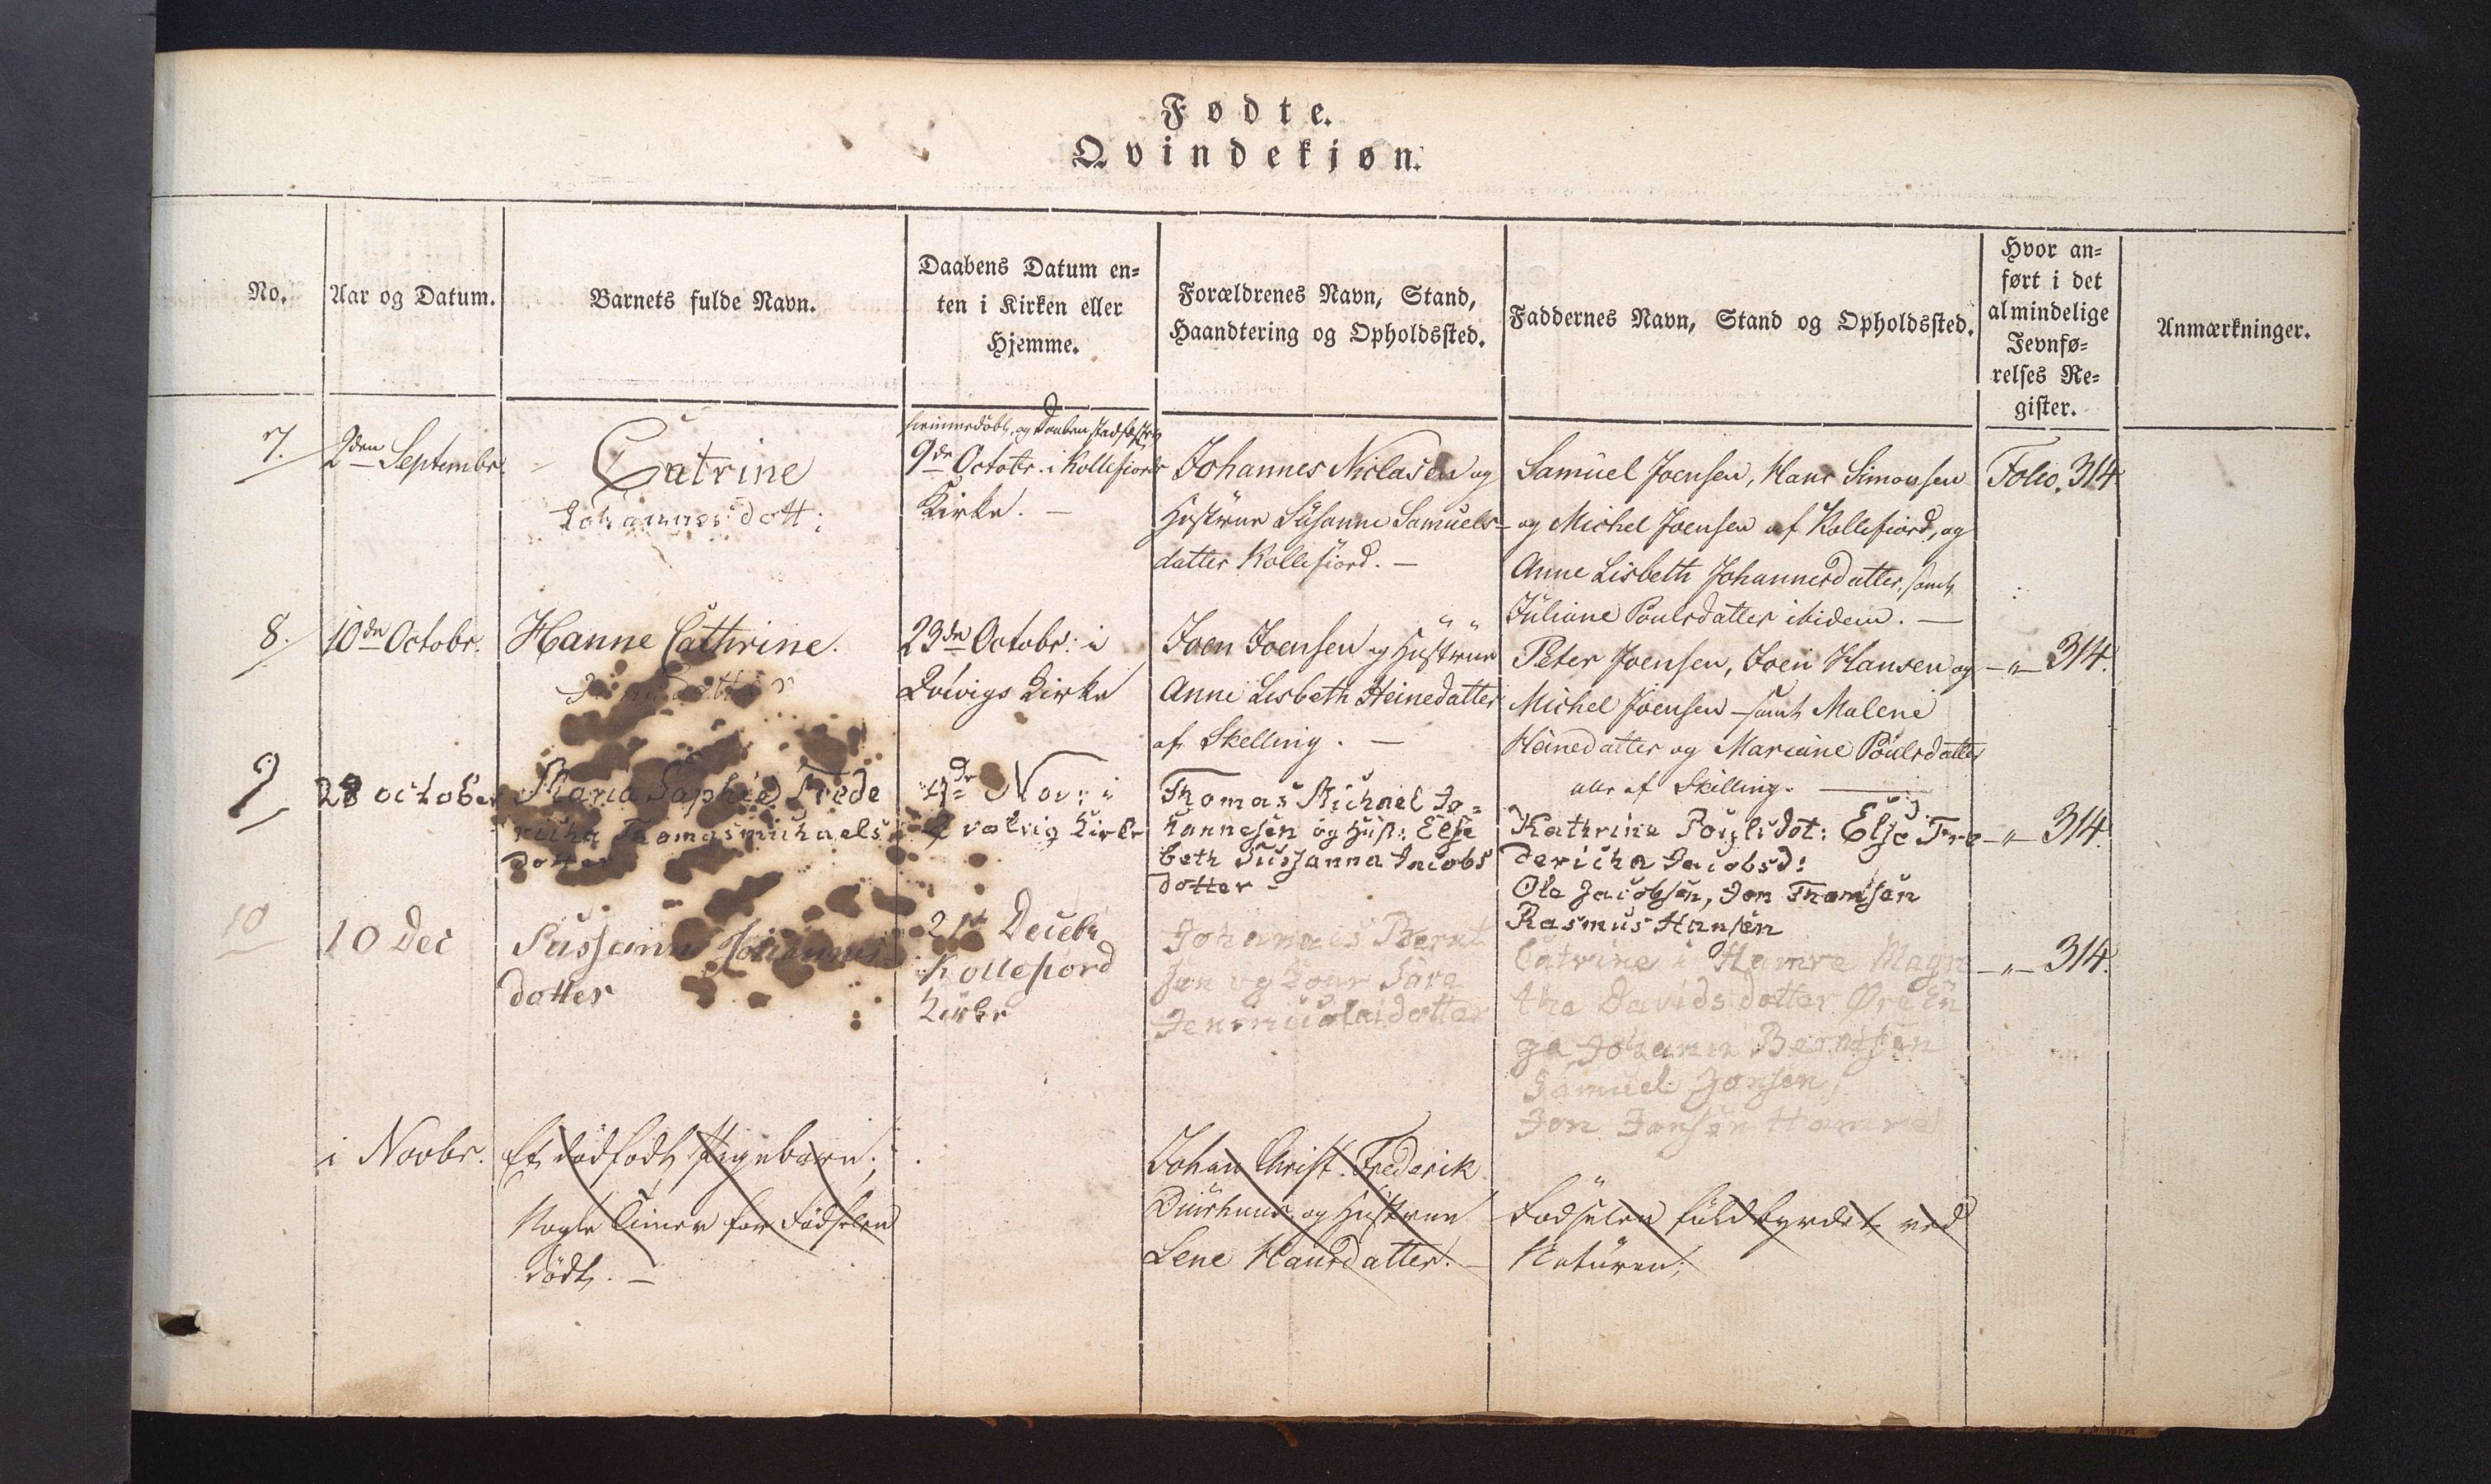 Fødte.
Qvindekjøn.
No.
Aar og Datum.
Barnets fulde Navn.
Daabens Datum en-
ten i Kirken eller
Hjemme.
Forældrenes Navn, Stand,
Haandtering og Opholdssted.
Faddernes Navn, Stand og Opholdssted.
Hvor an-
ført i det
almindelige
Jevnfø-
relses Re-
gister.
Anmærkninger.
7.
2den Septembr
Catrine
Johannesdott:
hjemmedøbt, og Daaben stadfæstet
9de Octobr. i Kollefiords
Kirke. —
Johannes Niclasen og
Hustrue Susanne Samuels-
datter Kollefiord. —
Samuel Joensen, Hans Simonsen
og Michel Joensen af Kollefiord, og
Anne Lisbeth Johannesdatter, samt
Juliane Poulsdatter ibidem. —
Folio. 314
8.
10de Octobr.
Hanne Cathrine.
23de Octobr. i
Qvivigs Kirke
Joen Joensen og Hustrue
Anne Lisbeth Heinedatter
af Skelling. —
Peter Joensen, Joen Hansen og
Michel Joensen samt Malene
Heinedatter og Mariane Poulsdatter
alle af Skelling. —
— " — 314.
9
28 october
Maria Sophie Frede
richa Thomasmichaels
dotter
4de Novr i
Qvalvig Kirke
Thomas Michael Jo-
hannesen og Hust: Else
beth Sussanna Jacobs
dotter -
Kathrine Poulsdot: Else Fre
dericha Jacobsd:
Ole Jacobsen, Jon Thomsen
Rasmus Hansen
— " — 314.
10
10 Dec
Sussanne Johannes-
datter
21de Decebr
Kollefiord
Kirke
Johannes Bernt
sen og Kone Sara
Jennicolaidotter
Catrine i Hamre Magre
tha Davidsdotter Øre En
ge, Johann Berntsen
Samuel Jonsen,
Jon Jonsen Hamre
— " — 314.
i Novbr.
Et dødfødt Pigebarn;
Nogle Timer før Fødselen
dødt. —
Johan Christ. Frederik
Duurhuus og Hustrue
Lene Hansdatter. —
Fødselen fuldbyrdet ved
Naturen;